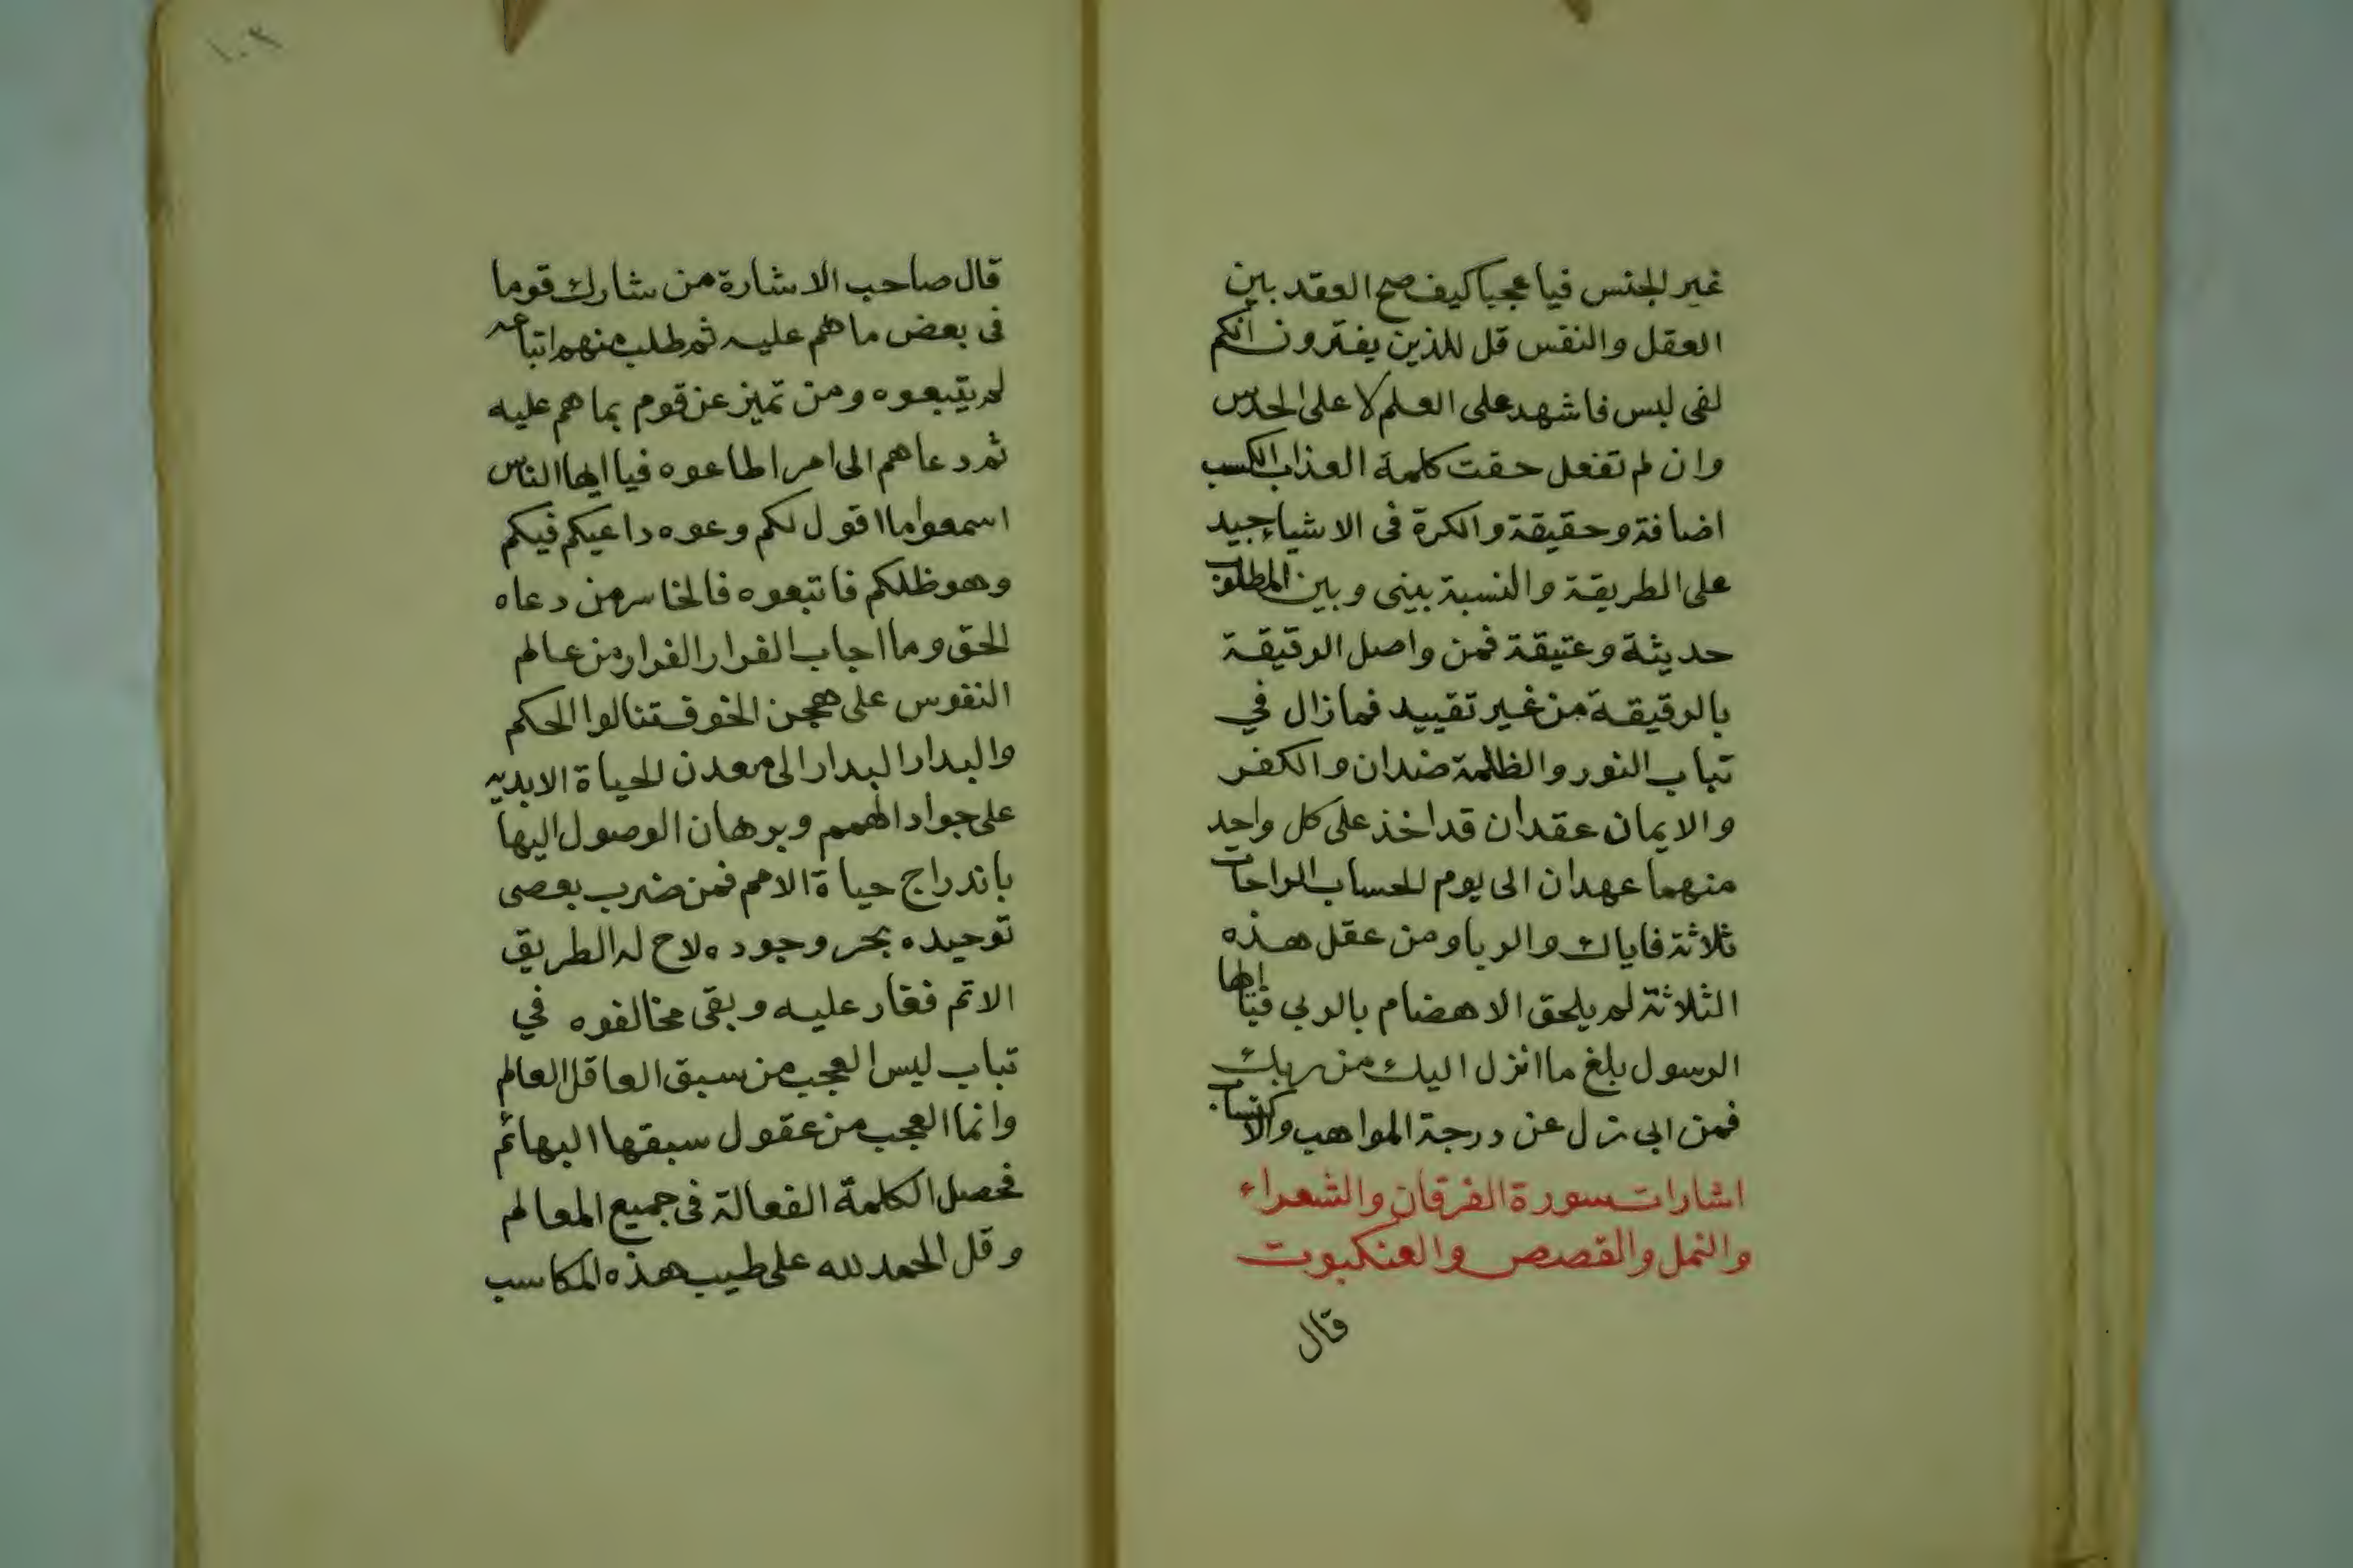 غير الجنس فيا عجبا كيف صح العقد بين
العقل والنفس قل للذين يفترون انكم
لفى لبس فاشهد على العلم لا على الحدس
وان لم تفعل حقت كلمة العذاب الكسب
اضافة وحقيقة والكرة فى الاشياء جيد
على الطريقة والنسبة بينى وبين المطلوب
حديثة وعتيقة فمن واصل الرقيقة
بالرقيقة من غير تقييد فما زال في
تباب النور والظلمة ضدان والكفر
والايمان عقدان قد اخذ على كل واحد
منهما عهدان الى يوم الحساب الراحات
ثلاثة فاياك والربا ومن عقل هذه
الثلاثة لم يلحق الاهضام بالربى فيا ايها
الرسول بلغ ما انزل اليك من ربك
فمن ابى نزل عن درجة المواهب والاكتساب
اشارات سورة الفرقان والشعراء
والنمل والقصص والعنكبوت
قال
١٠٣
قال صاحب الاشارة من شارك قوما
فى بعض ما هم عليه ثم طلب منهم اتباعه
لم يتبعوه ومن تميز عن قوم بما هم عليه
ثم دعاهم الى امر اطاعوه فيا ايها الناس
اسمعوا ما اقول لكم وعوه داعيكم فيكم
وهو ظلكم فاتبعوه فالخاسر من دعاه
الحق وما اجاب الفرار الفرار من عالم
النفوس على هجن الخوف تنالوا الحكم
والبدار البدار الى معدن الحياة الابديه
على جواد الهمم وبرهان الوصول اليها
باندراج حياة الامم فمن ضرب بعصى
توحيده بحر وجوده لاح له الطريق
الاتم فغار عليه وبقى مخالفوه في
تباب ليس العجب من سبق العاقل العالم
وانما العجب من عقول سبقها البهائم
فحصل الكلمة الفعالة فى جميع المعالم
وقل الحمد لله على طيب هذه المكاسب